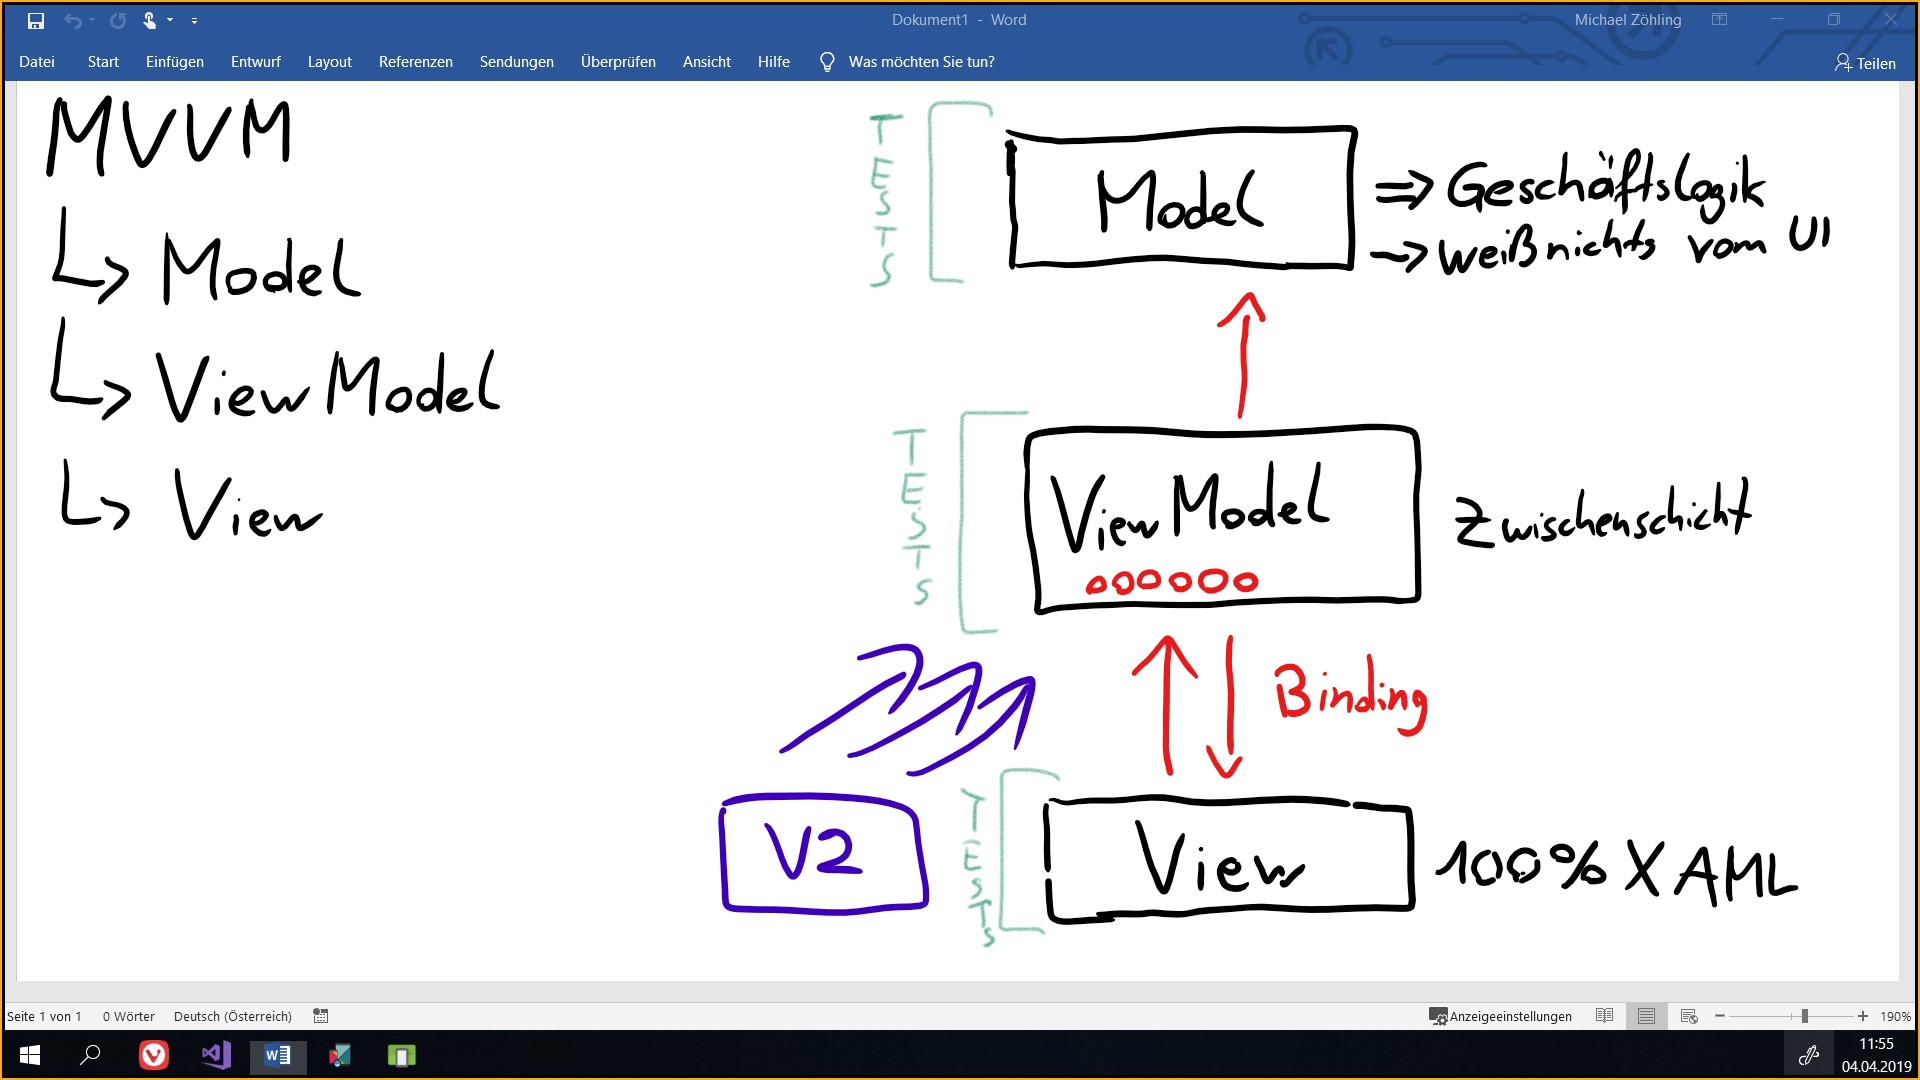 Dokument1 - Word
Michael Zöhling
Datei Start Einfügen Entwurf Layout Referenzen Sendungen Überprüfen Ansicht Hilfe Was möchten Sie tun? Teilen
MVVM
Model
ViewModel
View
TESTS
Model
⇒ Geschäftslogik
→ weiß nichts vom UI
TESTS
ViewModel
Zwischenschicht
Binding
V2
TESTS
View
100% XAML
Seite 1 von 1 0 Wörter Deutsch (Österreich) Anzeigeeinstellungen 190%
11:55
04.04.2019